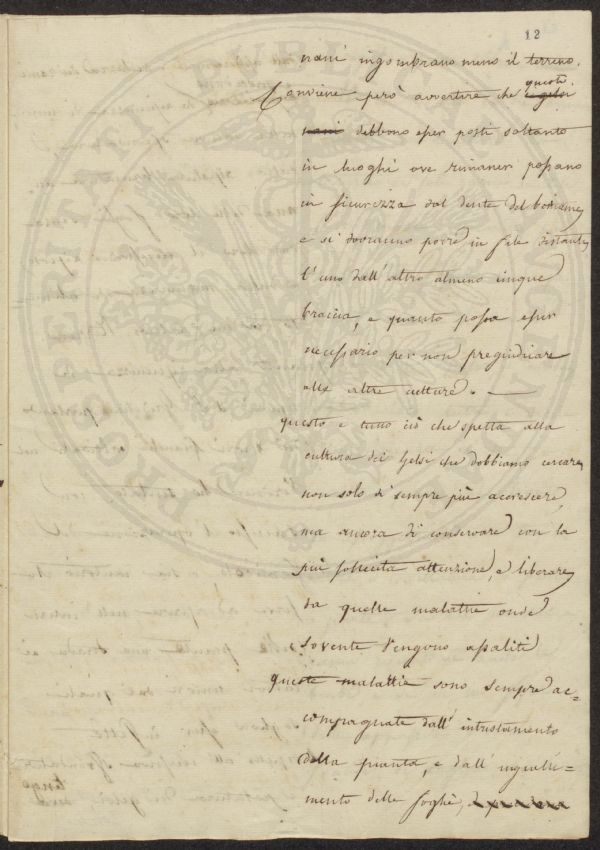 12
nani ingombrano meno il terreno.
Conviene però avvertire che questi i gelsi
nani debbono esser posti soltanto
in luoghi ove rimaner possano
in sicurezza dal dente del bestiame,
e si dovranno porre in file distanti
l'uno dall'altro almeno cinque
braccia, e quanto possa esser
necessario per non pregiudicare
alle altre culture. —
questo è tutto ciò che spetta alla
cultura dei Gelsi che dobbiamo cercare
non solo di sempre più accrescere,
ma ancora di conservare con la
più sollecita attenzione, e liberare
da quelle malattie onde
sovente vengono assaliti
queste malattie sono sempre ac=
compagnate dall'intristamento
della pianta, e dall'ingialli=
mento delle foglie,